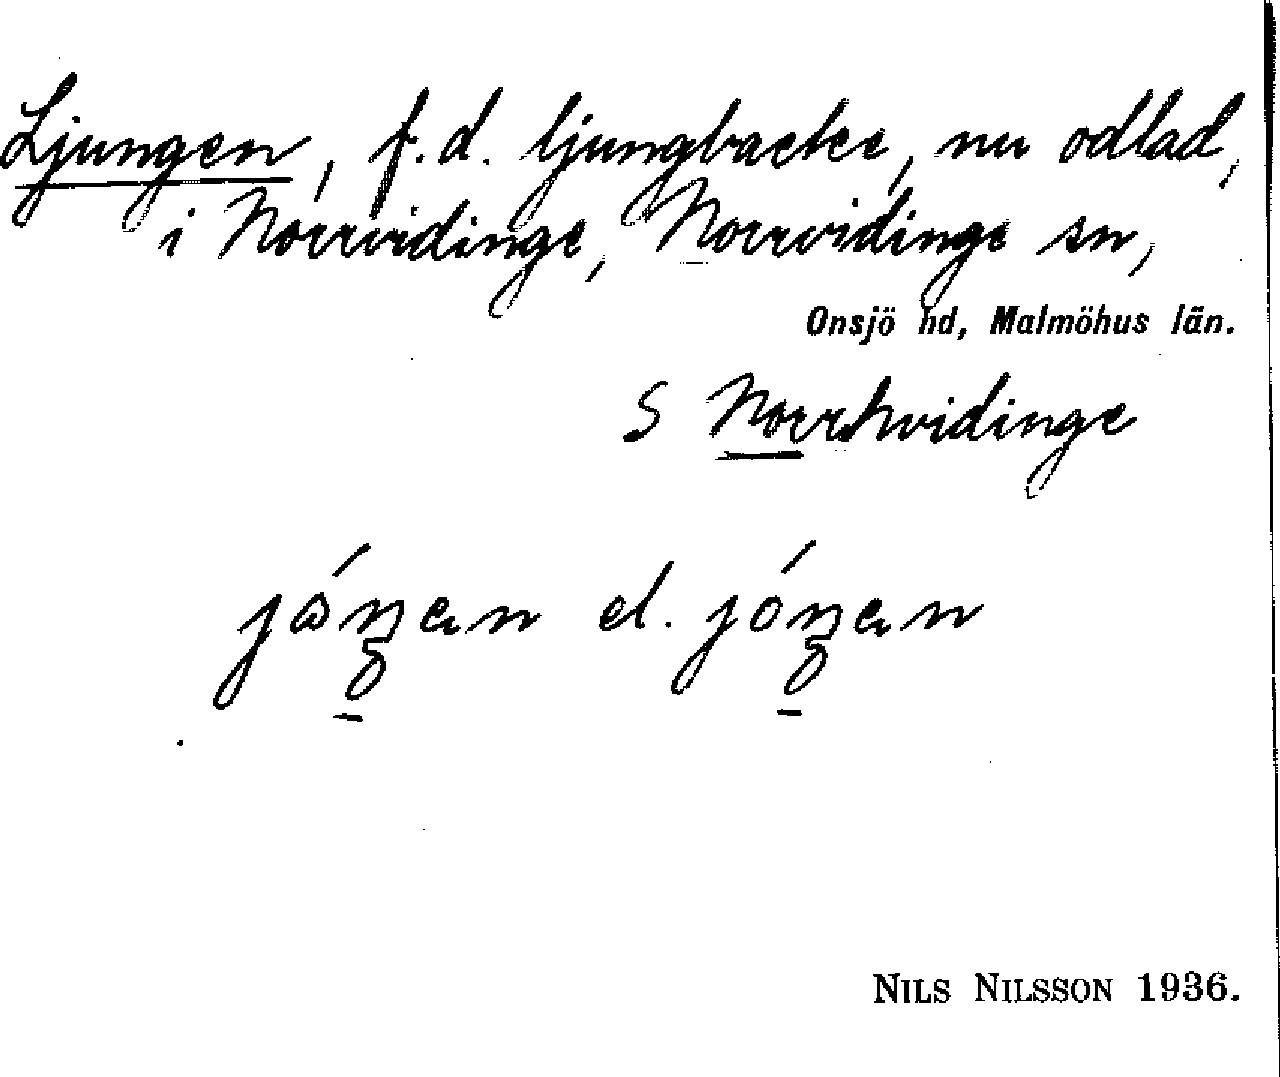 Ljungen, f.d. ljungbacke, nu odlad,
i Norrvidinge, Norrvidinge sn,
Onsjö hd, Malmöhus län.
S Norrhvidinge
el.
NILS NILSSON 1936.